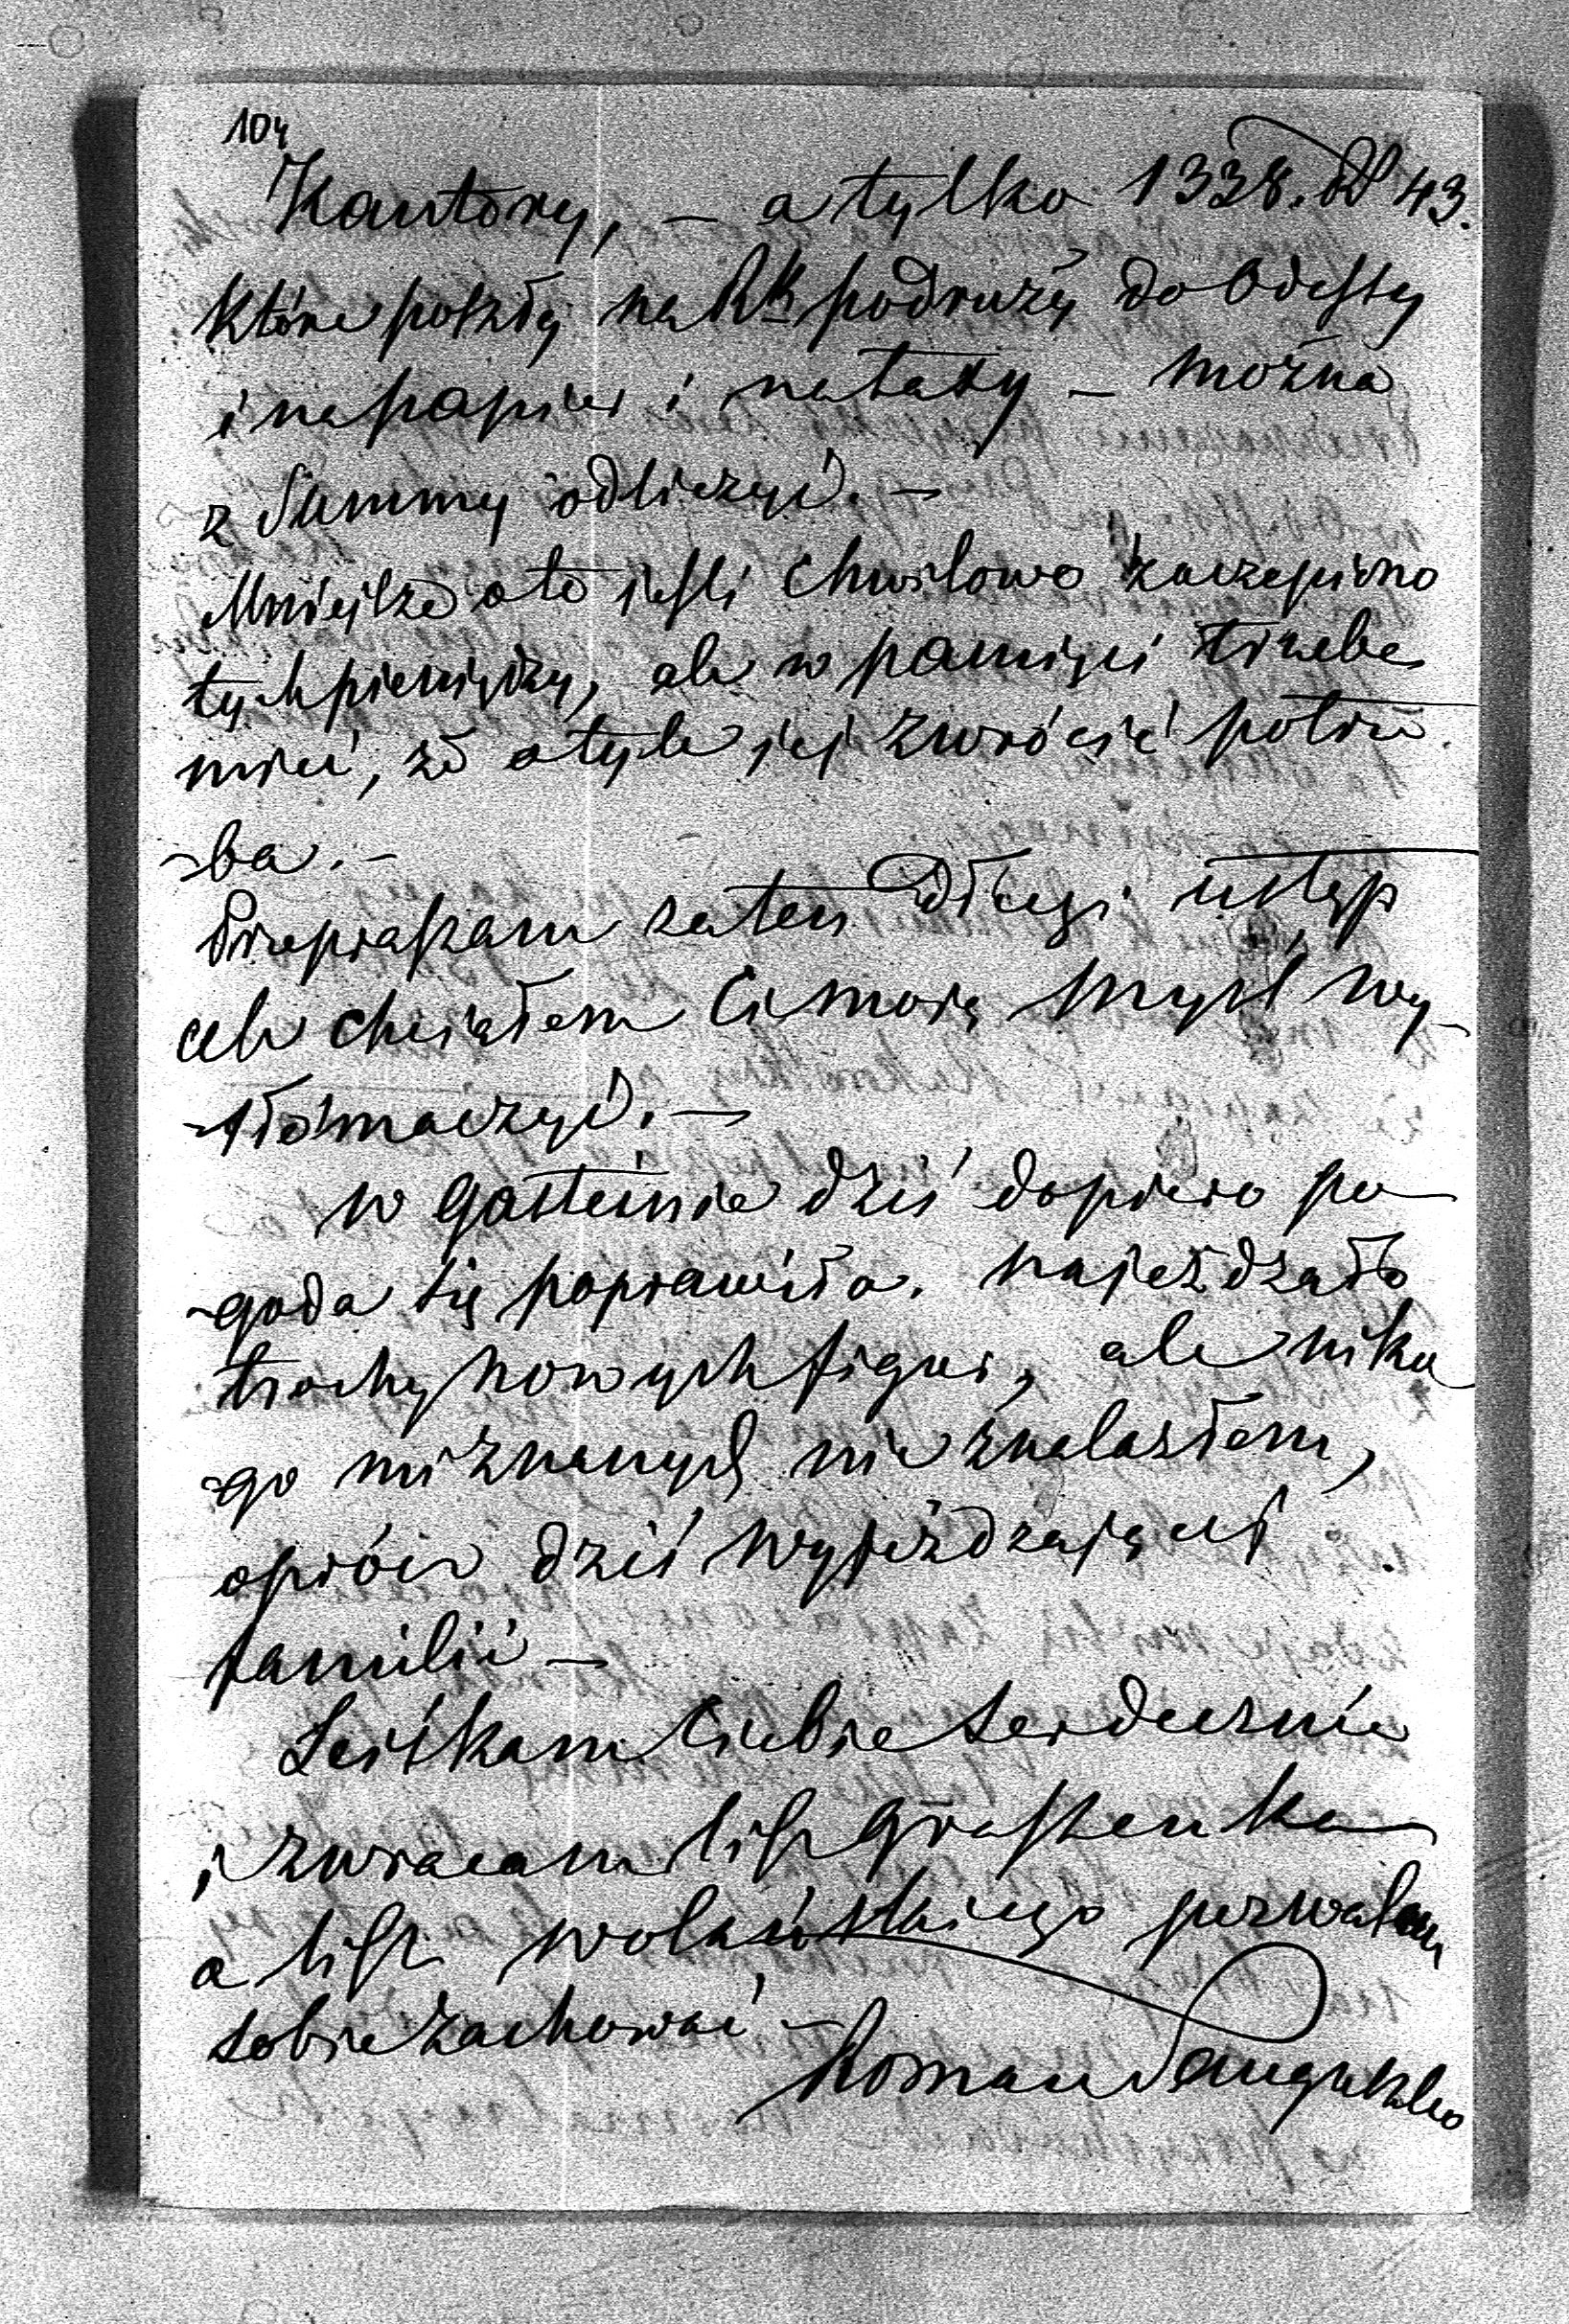 104
Kantory, — a tylko 1338. 43.
które poszły na podruży do Odessy
i na papier i na taxy — można
z Summy odliczyć. —
Mniejsza oto jeśli chwilowo zaczepiono
tych pieniędzy, ale w pamięci trzeba
mieć, że o tyle jej zwrócić potrze
-ba. —
Przepraszam za ten długi ustęp
ale chciałem Ci moją myśl wy-
-tłómaczyć. —
W Gasteinie dziś dopiero po-
-goda się poprawiła. Najeżdżało
trochę nowych figur, ale niko
-go mi znanych nie znalazłem,
oprócz dziś wyjeżdżającej
familii —
Sciskam Ciebie serdecznie
i zwracam list Graszenka
a list Wolańskiego pozwalam
sobie zachować —
Roman Sanguszko